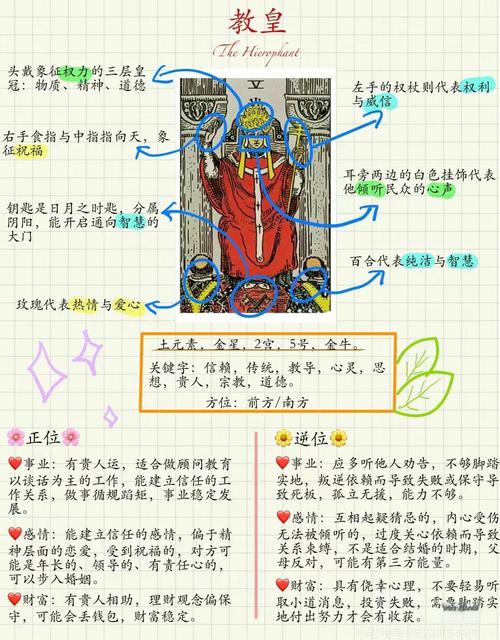 教皇
The Hierophant
头戴象征权力的三层皇
冠：物质、精神、道德
左手的权杖则代表权利
与威信
右手食指与中指指向天，象
征祝福
耳旁两边的白色挂饰代表
他倾听民众的心声
钥匙是日月之时匙，分属
阴阳，能开启通向智慧的
大门
百合代表纯洁与智慧
玫瑰代表热情与爱心
土元素，金星，2宫，5号，金牛。
关键字：信赖，传统，教导，心灵，思
想，贵人，宗教，道德。
方位：前方/南方
正位
事业：有贵人运，适合做顾问教育
以谈话为主的工作，能建立信任的工
作关系，做事循规蹈矩，事业稳定发
展。
感情：能建立信任的感情，偏于精
神层面的恋爱，受到祝福的，对方可
能是年长的、领导的、有责任心的，
可以步入婚姻。
财富：有贵人相助，理财观念偏保
守，可能会丢钱包，财富稳定。
逆位
事业：应多听他人劝告，不够脚踏
实地，叛逆依赖而导致失败或保守导
致死板，孤立无援，能力不够。
感情：互相起疑猜忌的，内心受伤
无法被倾听的，过度关心依赖而导致
关系束缚，不是适合结婚的时期，父
母反对，可能有第三方能量。
财富：具有侥幸心理，不要轻易听
取小道消息，投资失败，需要脚踏实
地付出努力才会有收获。